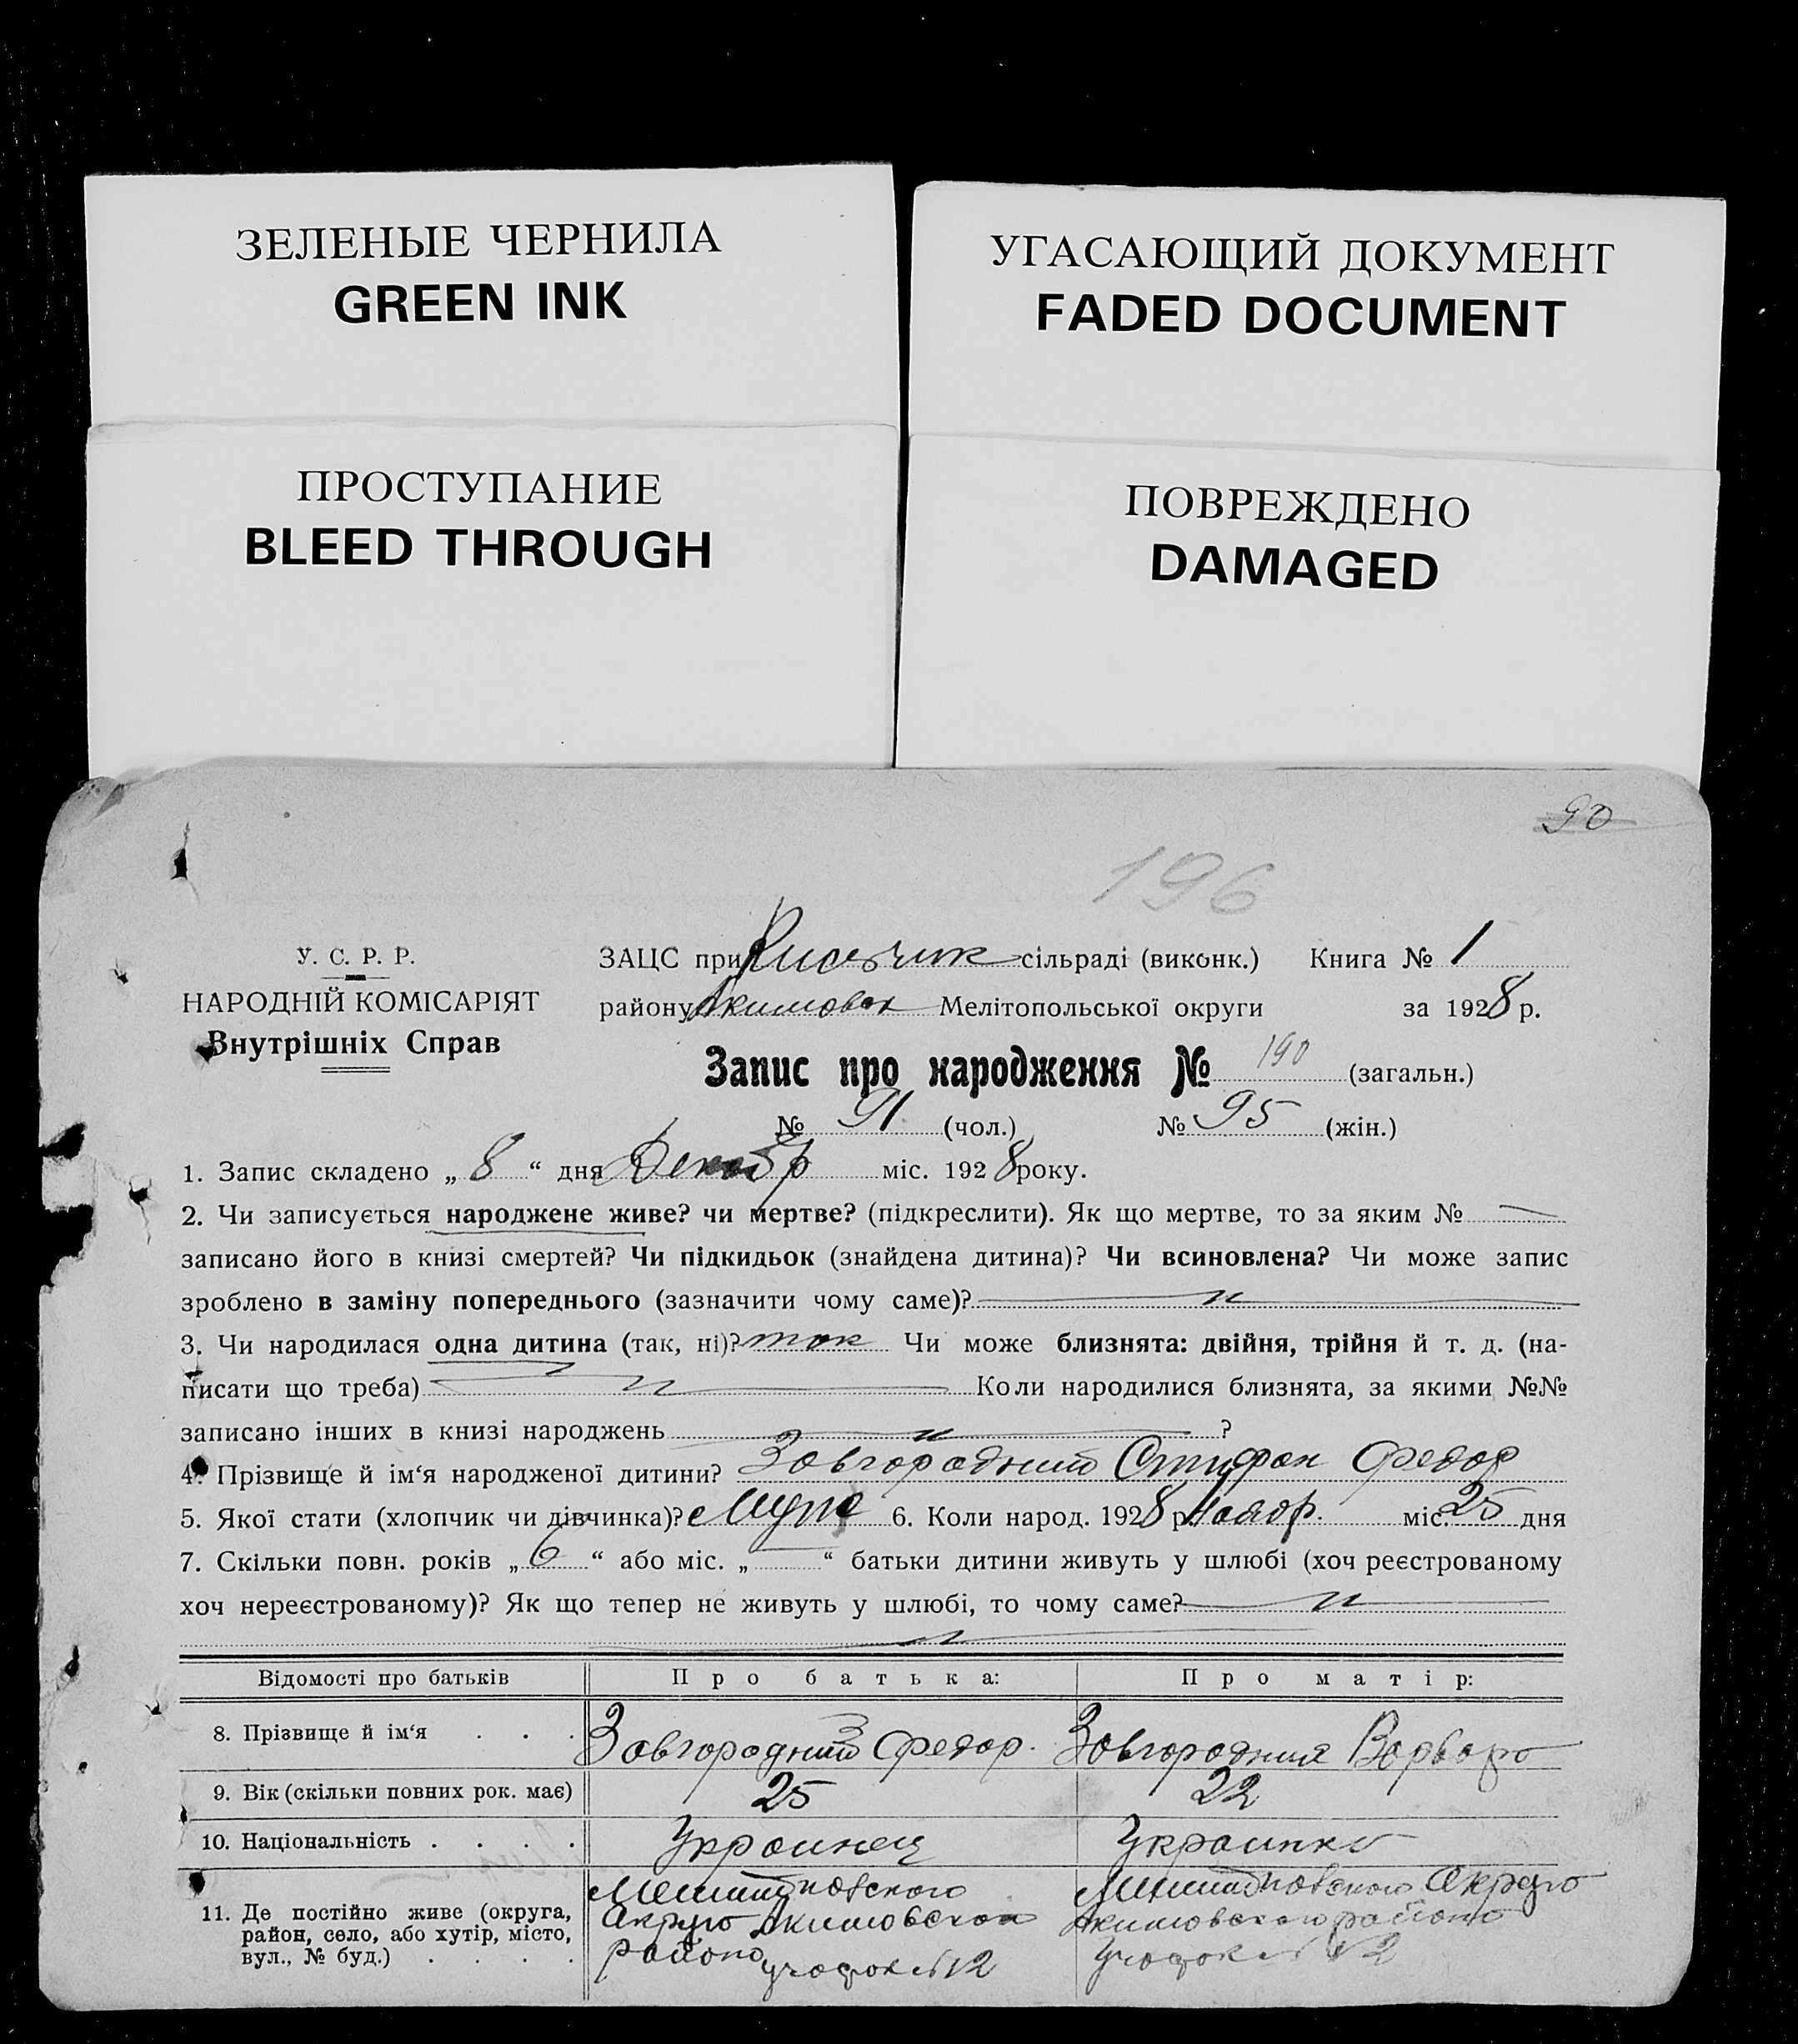 ЗЕЛЕНЫЕ ЧЕРНИЛА
GREEN INK
УГАСАЮЩИЙ ДОКУМЕНТ
FADED DOCUMENT
ПРОСТУПАНИЕ
BLEED THROUGH
ПОВРЕЖДЕНО
DAMAGED
90
196
У. С. Р. Р.
НАРОДНІЙ КОМІСАРІЯТ
Внутрішніх Справ
ЗАЦС при сільраді (виконк.) Книга № 1
району Акимовск Мелітопольської округи за 1928 р.
Запис про народження № 190 (загальн.)
№ 91 (чол.) № 95 (жін.)
1. Запис складено „ 8 “ дня Декабр міс. 1928 року.
2. Чи записується народжене живе? чи мертве? (підкреслити). Як що мертве, то за яким №
записано його в книзі смертей? Чи підкидьок (знайдена дитина)? Чи всиновлена? Чи може запис
зроблено в заміну попереднього (зазначити чому саме)?
3. Чи народилася одна дитина (так, ні)? так Чи може близнята: двійня, трійня й т. д. (на-
писати що треба) Коли народилися близнята, за якими №№
записано інших в книзі народжень ?
4. Прізвище й ім‘я народженої дитини? Завгородний Федор
5. Якої стати (хлопчик чи дівчинка)? Муж 6. Коли народ. 1928 р. Ноябр. міс. 25 дня
7. Скільки повн. років „ 6 “ або міс. „ “ батьки дитини живуть у шлюбі (хоч реєстрованому
хоч нереєстрованому)? Як що тепер не живуть у шлюбі, то чому саме?
Відомості про батьків Про батька: Про матір:
8. Прізвище й ім‘я . . . Завгородний Федор. Завгородния Варвара
9. Вік (скільки повних рок. має) 25 22
10. Національність . . . . Украинец Украинка
11. Де постійно живе (округа,
район, село, або хутір, місто,
вул., № буд.) . . . .
Акимовского
района участок №2
Округа
Акимовского района
участок №2